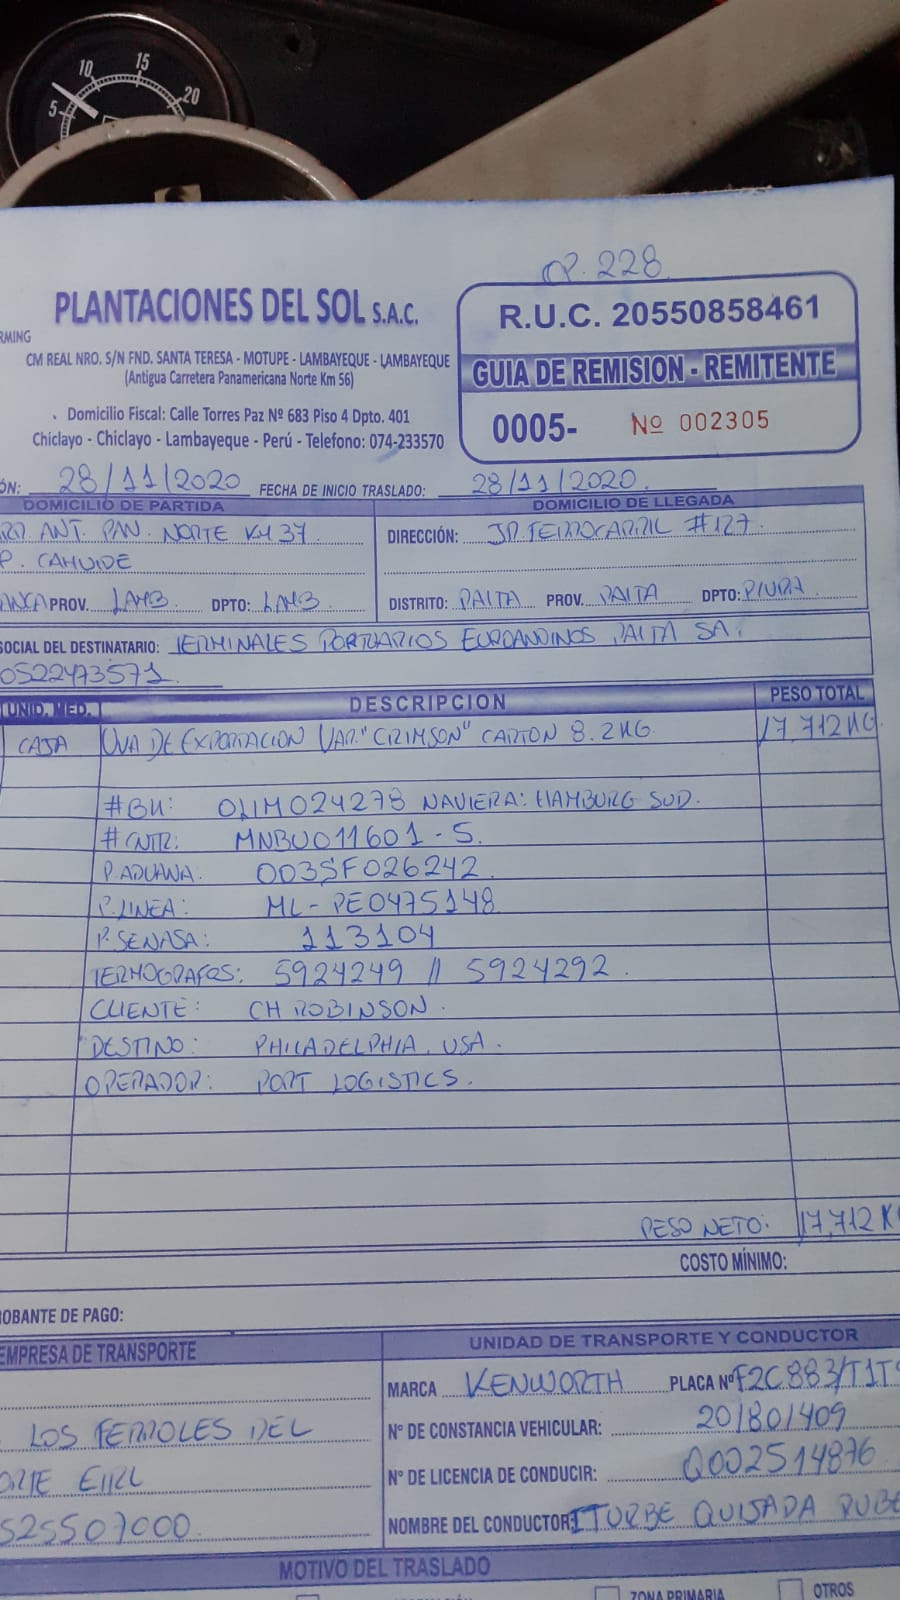 5 10 15 20
OP. 228
PLANTACIONES DEL SOL S.A.C.
RMING
CM REAL NRO. S/N FND. SANTA TERESA - MOTUPE - LAMBAYEQUE - LAMBAYEQUE
(Antigua Carretera Panamericana Norte Km 56)
. Domicilio Fiscal: Calle Torres Paz Nº 683 Piso 4 Dpto. 401
Chiclayo - Chiclayo - Lambayeque - Perú - Telefono: 074-233570
R.U.C. 20550858461
GUIA DE REMISION - REMITENTE
0005- Nº 002305
ÓN: 28/11/2020 FECHA DE INICIO TRASLADO: 28/11/2020.
DOMICILIO DE PARTIDA
ANT. PAN. NORTE KM 37
P. CAHUIDE
PROV. LAMB. DPTO: LAMB.
DOMICILIO DE LLEGADA
DIRECCIÓN: JR. FERROCARRIL #127.
DISTRITO: PAITA PROV. PAITA DPTO: PIURA
SOCIAL DEL DESTINATARIO: TERMINALES PORTUARIOS EUROANDINOS PAITA SA.
0522473571.
UNID. MED. DESCRIPCION PESO TOTAL
CAJA UVA DE EXPORTACION VAR. "CRIMSON" CARTON 8.2KG 17,712KG
#BK: 01IM024278 NAVIERA: HAMBURG SUD.
#CNTR: MNBU011601-5.
P. ADUANA: 003SF026242.
P. LINEA: ML-PE0475148
P. SENASA: 113104
TERMOGRAFOS: 5924249 // 5924292.
CLIENTE: CH ROBINSON.
DESTINO: PHILADELPHIA. USA.
OPERADOR: PORT LOGISTICS.
PESO NETO: 17,712 K
COSTO MÍNIMO:
OBANTE DE PAGO:
EMPRESA DE TRANSPORTE
LOS FERROLES DEL
ORTE EIRL
525507000
UNIDAD DE TRANSPORTE Y CONDUCTOR
MARCA KENWORTH PLACA Nº F2C883/T1T
Nº DE CONSTANCIA VEHICULAR: 201801409
Nº DE LICENCIA DE CONDUCIR: Q002514876
NOMBRE DEL CONDUCTOR: ITURBE QUIJADA RUBE
MOTIVO DEL TRASLADO
ZONA PRIMARIA OTROS